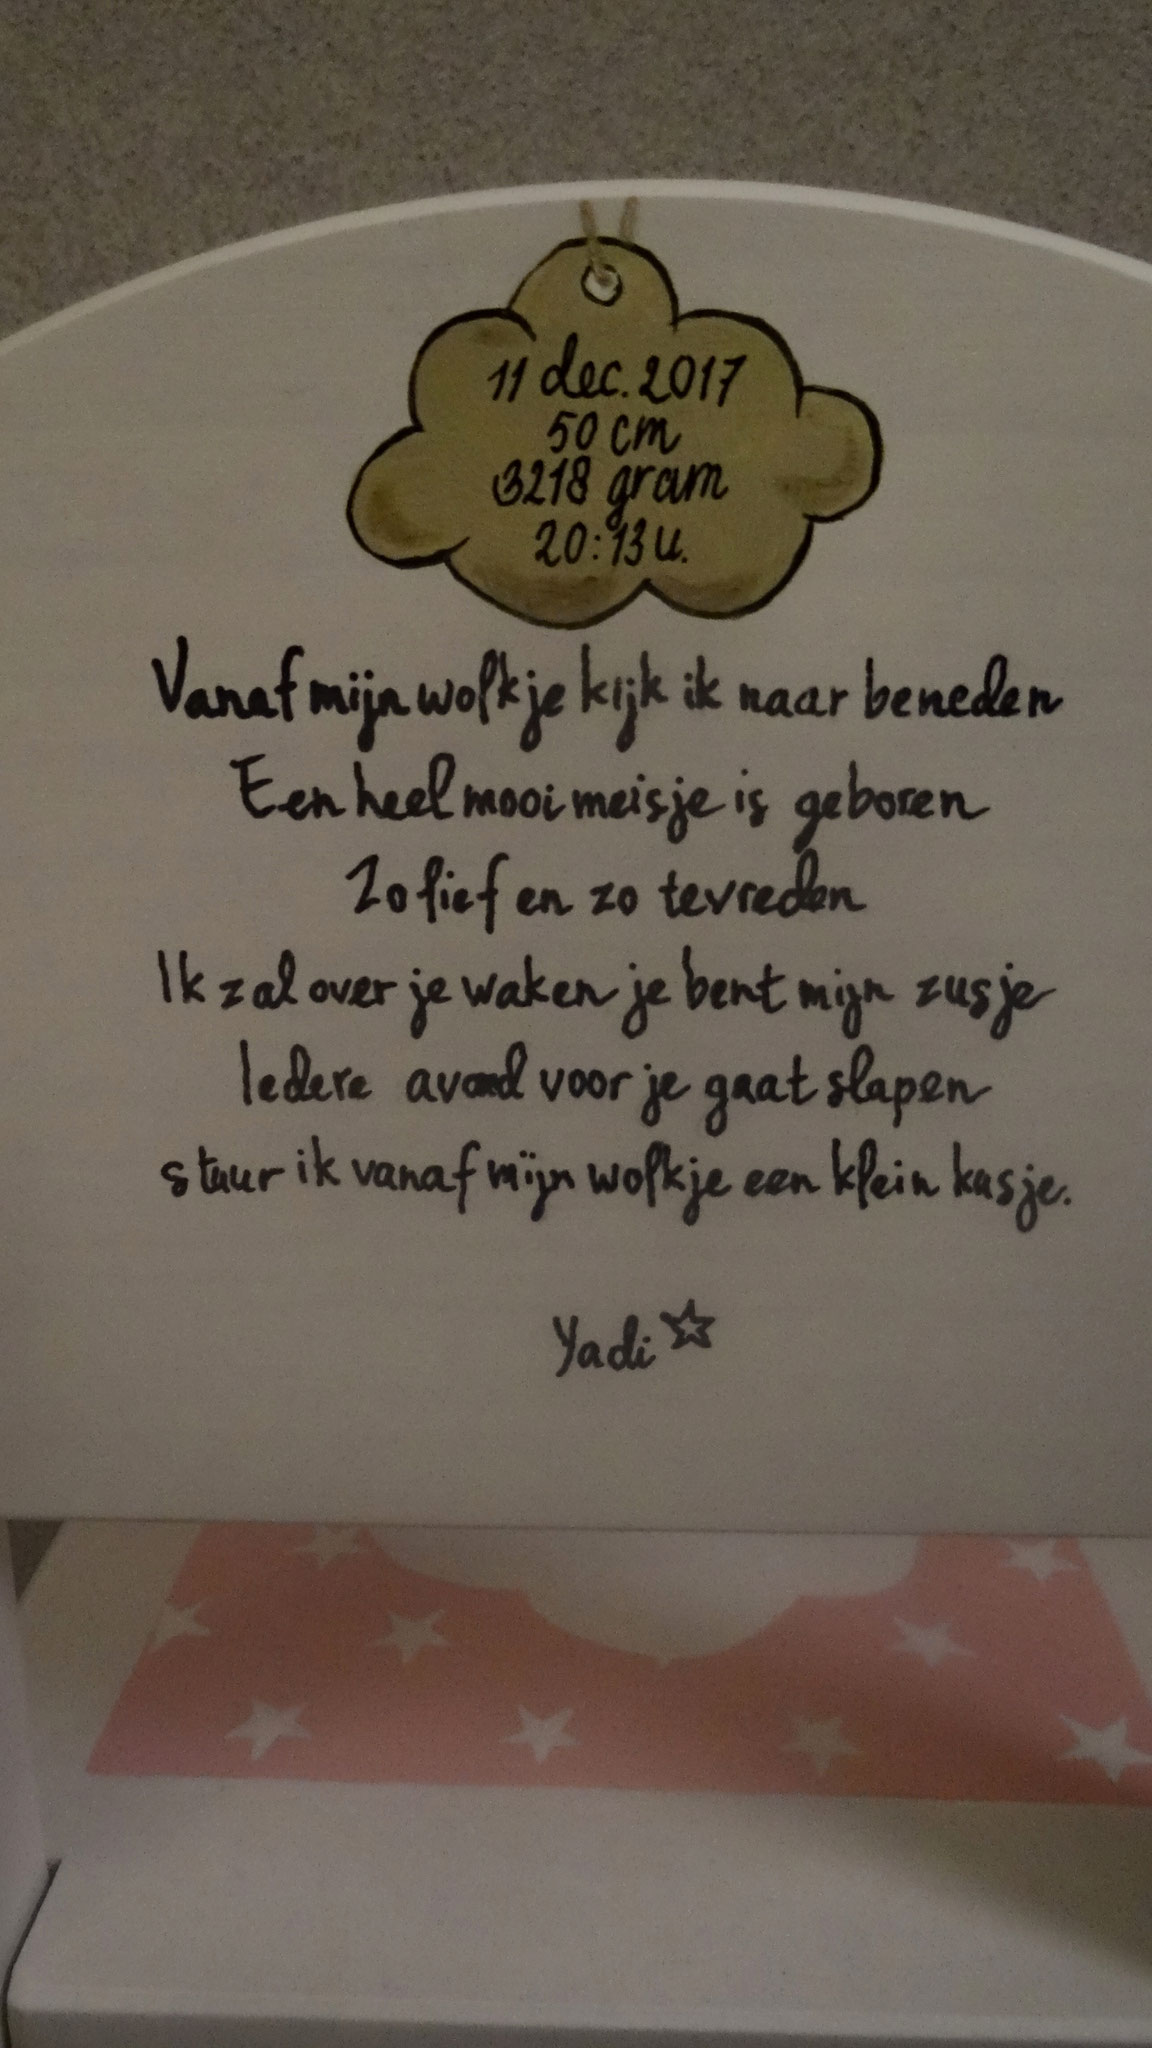 11 dec. 2017
50 cm
3218 gram
20:13 u.
Vanaf mijn wolkje kijk ik naar beneden
Een heel mooi meisje is geboren
Zo lief en zo tevreden
Ik zal over je waken je bent mijn zusje
Iedere avond voor je gaat slapen
stuur ik vanaf mijn wolkje een klein kusje.
Yadi